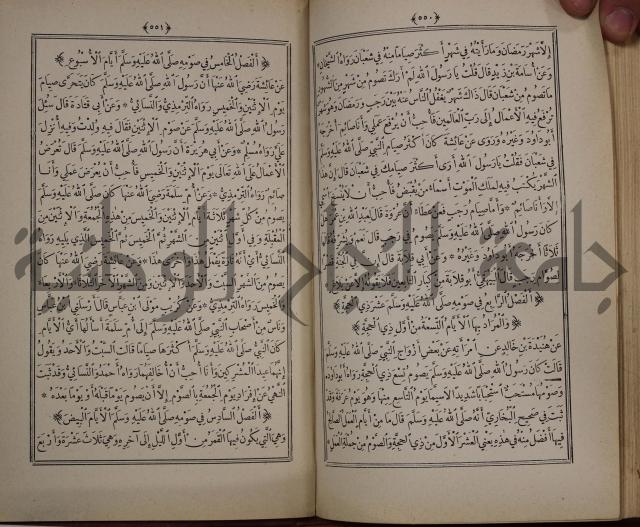 ﴿٥٥٠﴾
إلا شهر رمضان وما رأيته في شهر أكثر صياما منه في شعبان رواه الشيخان
وعن أسامة بن زيد قال قلت يا رسول الله لم أرك تصوم من شهر من الشهور
ما تصوم من شعبان قال ذاك شهر يغفل الناس عنه بين رجب ورمضان وهو شهر
ترفع فيه الأعمال إلى رب العالمين فأحب أن يرفع عملي وأنا صائم أخرجه
أبو داود وغيره وروى عن عائشة كان أكثر صيام النبي صلى الله عليه وسلم
في شعبان فقلت يا رسول الله أرى أكثر صيامك في شعبان قال إن هذا
الشهر يكتب فيه لملك الموت أسماء من يقبض فأحب أن لا ينسخ اسمي
إلا وأنا صائم وأما صيام رجب فعن عطاء أن عروة قال لعبد الله بن عمر
كان رسول الله صلى الله عليه وسلم يصوم في رجب قال نعم ويشرفه قالها
ثلاثا أخرجه أبو داود وغيره وعن أبي قلابة قال إن في الجنة قصرا
لصوام رجب قال البيهقي أبو قلابة من كبار التابعين
﴿الفصل الرابع في صومه صلى الله عليه وسلم عشر ذي الحجة﴾
﴿والمراد بها الأيام التسعة من أول ذي الحجة﴾
عن هنيدة بن خالد عن امرأته عن بعض أزواج النبي صلى الله عليه وسلم
قالت كان رسول الله صلى الله عليه وسلم يصوم تسع ذي الحجة رواه أبو داود
وصومها مستحب استحبابا شديدا لا سيما يوم التاسع منها وهو يوم عرفة وقد
ثبت في صحيح البخاري أنه صلى الله عليه وسلم قال ما من أيام العمل الصالح
فيها أفضل منه في هذه يعني العشر الأول من ذي الحجة والصوم من جملة العمل
﴿٥٥١﴾
﴿الفصل الخامس في صومه صلى الله عليه وسلم أيام الأسبوع﴾
عن عائشة رضي الله عنها أن رسول الله صلى الله عليه وسلم كان يتحرى صيام
يوم الإثنين والخميس رواه الترمذي والنسائي * وعن أبي قتادة قال سئل
رسول الله صلى الله عليه وسلم عن صوم الإثنين فقال فيه ولدت وفيه أنزل
علي رواه مسلم * وعن أبي هريرة أن رسول الله صلى الله عليه وسلم قال تعرض
الأعمال على الله تعالى يوم الإثنين والخميس فأحب أن يعرض عملي وأنا
صائم رواه الترمذي * وعن أم سلمة رضي الله عنها كان صلى الله عليه وسلم
يصوم من كل شهر ثلاثة أيام الإثنين والخميس من هذه الجمعة والإثنين من
المقبلة وفي أول اثنين من الشهر ثم الخميس ثم الخميس الذي يليه رواه
النسائي وعن عائشة رضي الله عنها كان
يصوم من الشهر السبت والأحد والإثنين ومن الشهر الآخر الثلاثاء والأربعاء
والخميس رواه الترمذي * وعن كريب مولى ابن عباس قال أرسلني ابن عباس
وناس من أصحاب النبي صلى الله عليه وسلم إلى أم سلمة أسألها أي الأيام
كان النبي صلى الله عليه وسلم أكثرها صياما قالت السبت والأحد ويقول
إنهما عيد المشركين وأنا أحب أن أخالفهم رواه أحمد والنسائي وقد ثبت
النهي عن إفراد يوم الجمعة بالصوم إلا أن يصوم يوما قبله أو يوما بعده *
﴿الفصل السادس في صومه صلى الله عليه وسلم الأيام البيض﴾
وهي التي يكون فيها القمر من أول الليل إلى آخره وهي ثلاث عشرة وأربع
جامعة النجاح الوطنية